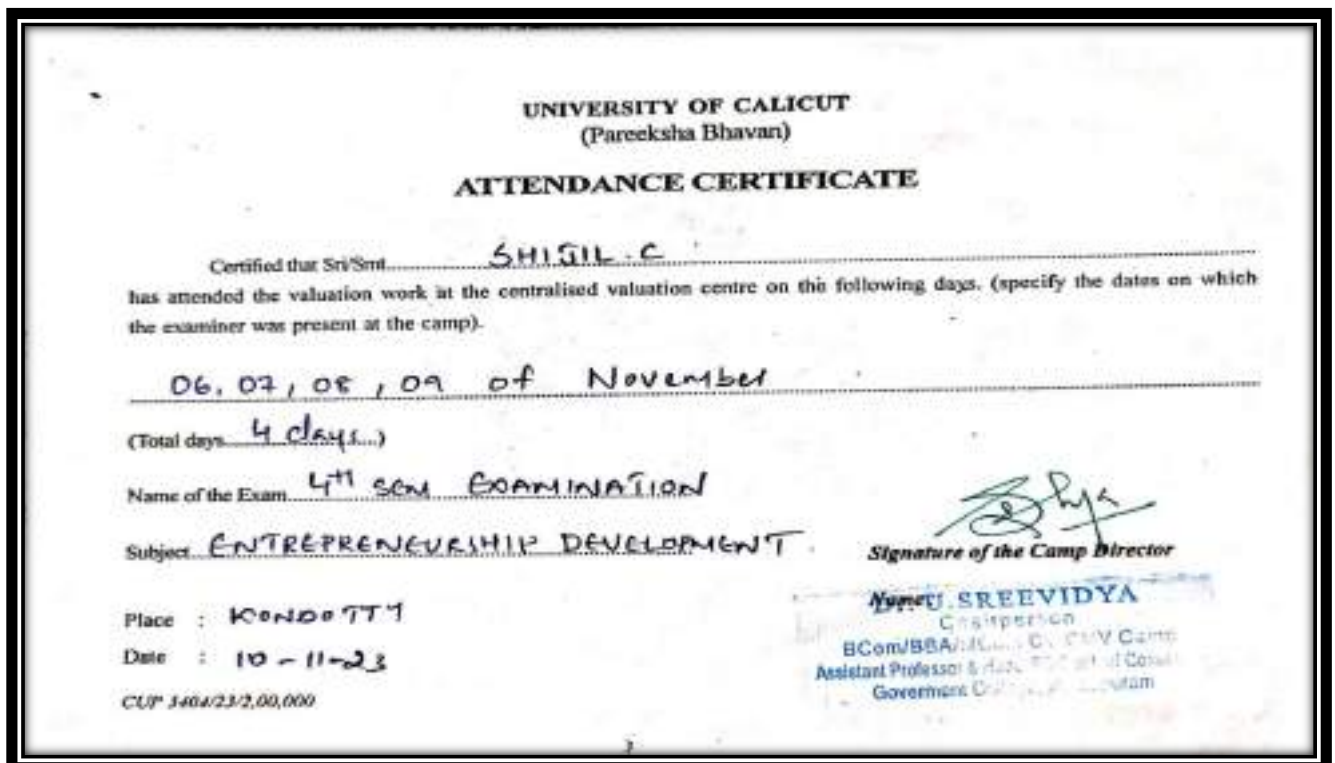 UNIVERSITY OF CALICUT
(Pareeksha Bhavan)
ATTENDANCE CERTIFICATE
Certified that Sri/Smt. SHIJIL.C
has attended the valuation work at the centralised valuation centre on the following days. (specify the dates on which
the examiner was present at the camp).
06, 07, 08, 09 of November
(Total days 4 days)
Name of the Exam 4th SEM EXAMINATION
Subject ENTREPRENEURSHIP DEVELOPMENT.
Signature of the Camp Director
Place : KONDOTTY
Date : 10-11-23
CUP 3404/23/2,00,000
Name
U. SREEVIDYA
Chairperson
BCom/BBA CMV Camp
Assistant Professor &
Goverment